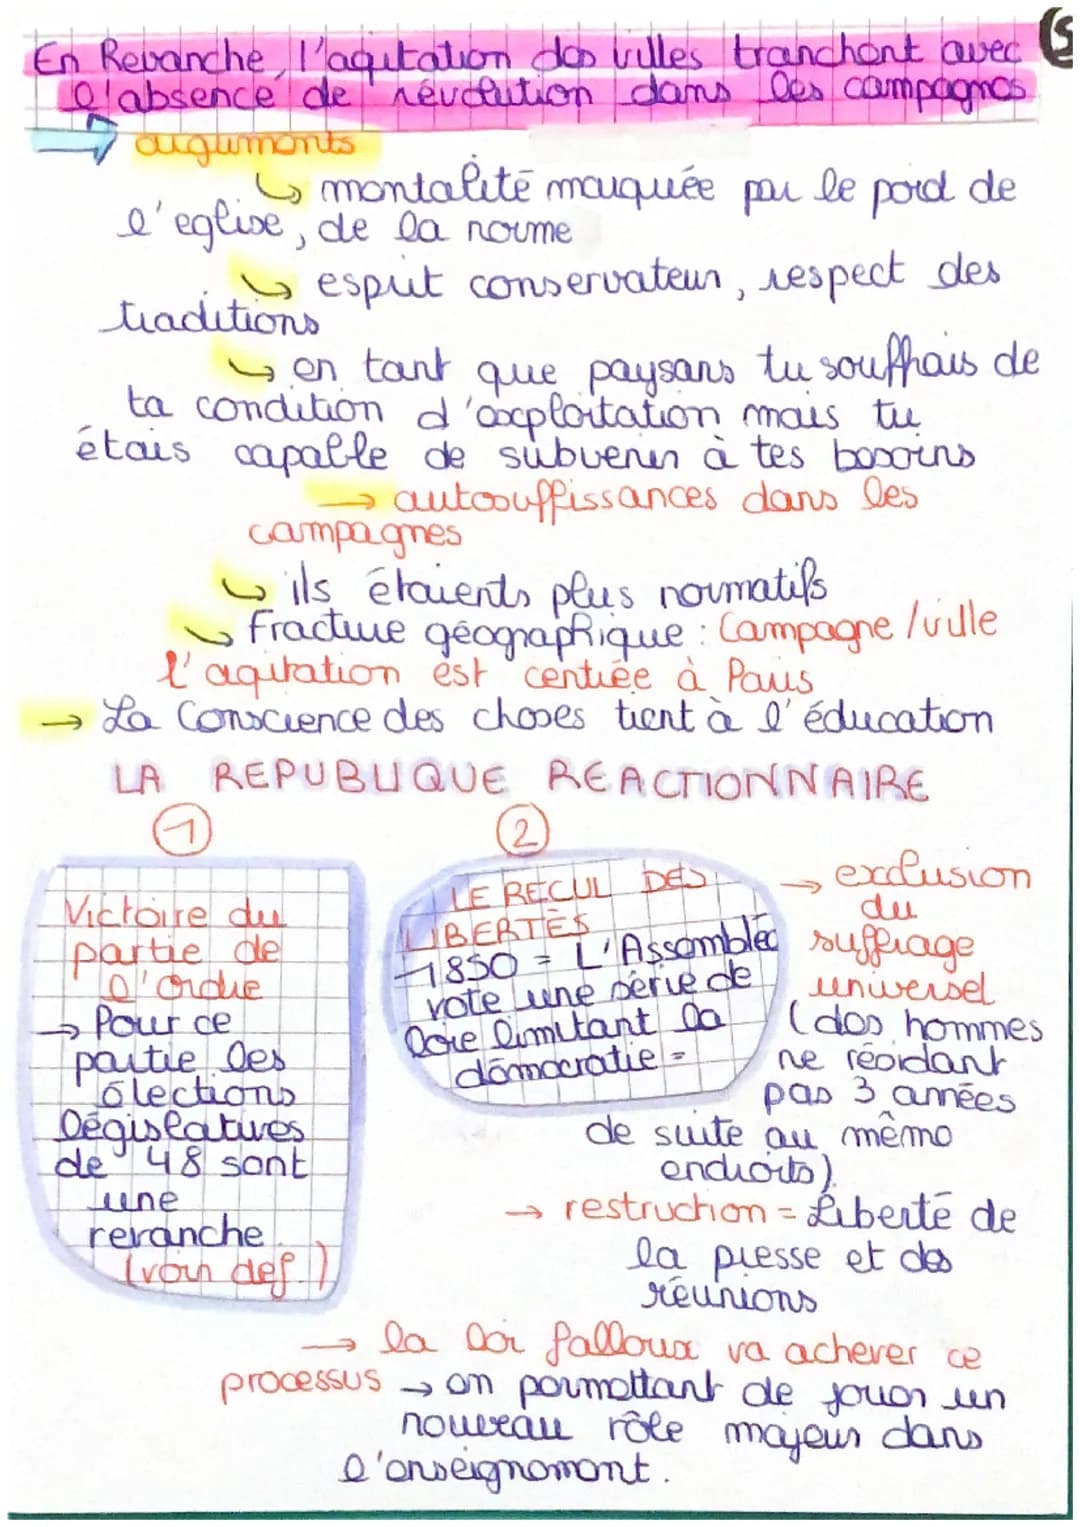 (5
En Revanche, l'agitation des villes tranchent avec
l'absence de révolution dans les campagnes
→ arguments
↳ mentalité marquée par le poid de
l'eglise, de la norme
↳ esprit conservateur, respect des
traditions
↳ en tant que paysans tu souffrais de
ta condition d'exploitation mais tu
étais capable de subvenir à tes besoins
→ autosuffissances dans les
campagnes
↳ ils étaients plus normatifs
↳ Fracture géographique : Campagne / ville
l'agitation est centrée à Paris
→ La Conscience des choses tient à l'éducation
LA REPUBLIQUE REACTIONNAIRE
1
Victoire du
partie de
l'Ordre
→ Pour ce
partie les
élections
législatives
de 48 sont
une
revanche
(voir def.)
2
LE RECUL DES
LIBERTÉS
1850 = L'Assemblée
vote une série de
loie limitant la
démocratie =
→ exclusion
du
suffrage
universel
(des hommes
ne résidant
pas 3 années
de suite au même
endroits)
→ restruction = Liberté de
la presse et des
réunions
→ la loi falloux va achever ce
processus → en permettant de jouer un
nouveau rôle majeur dans
l'enseignement.